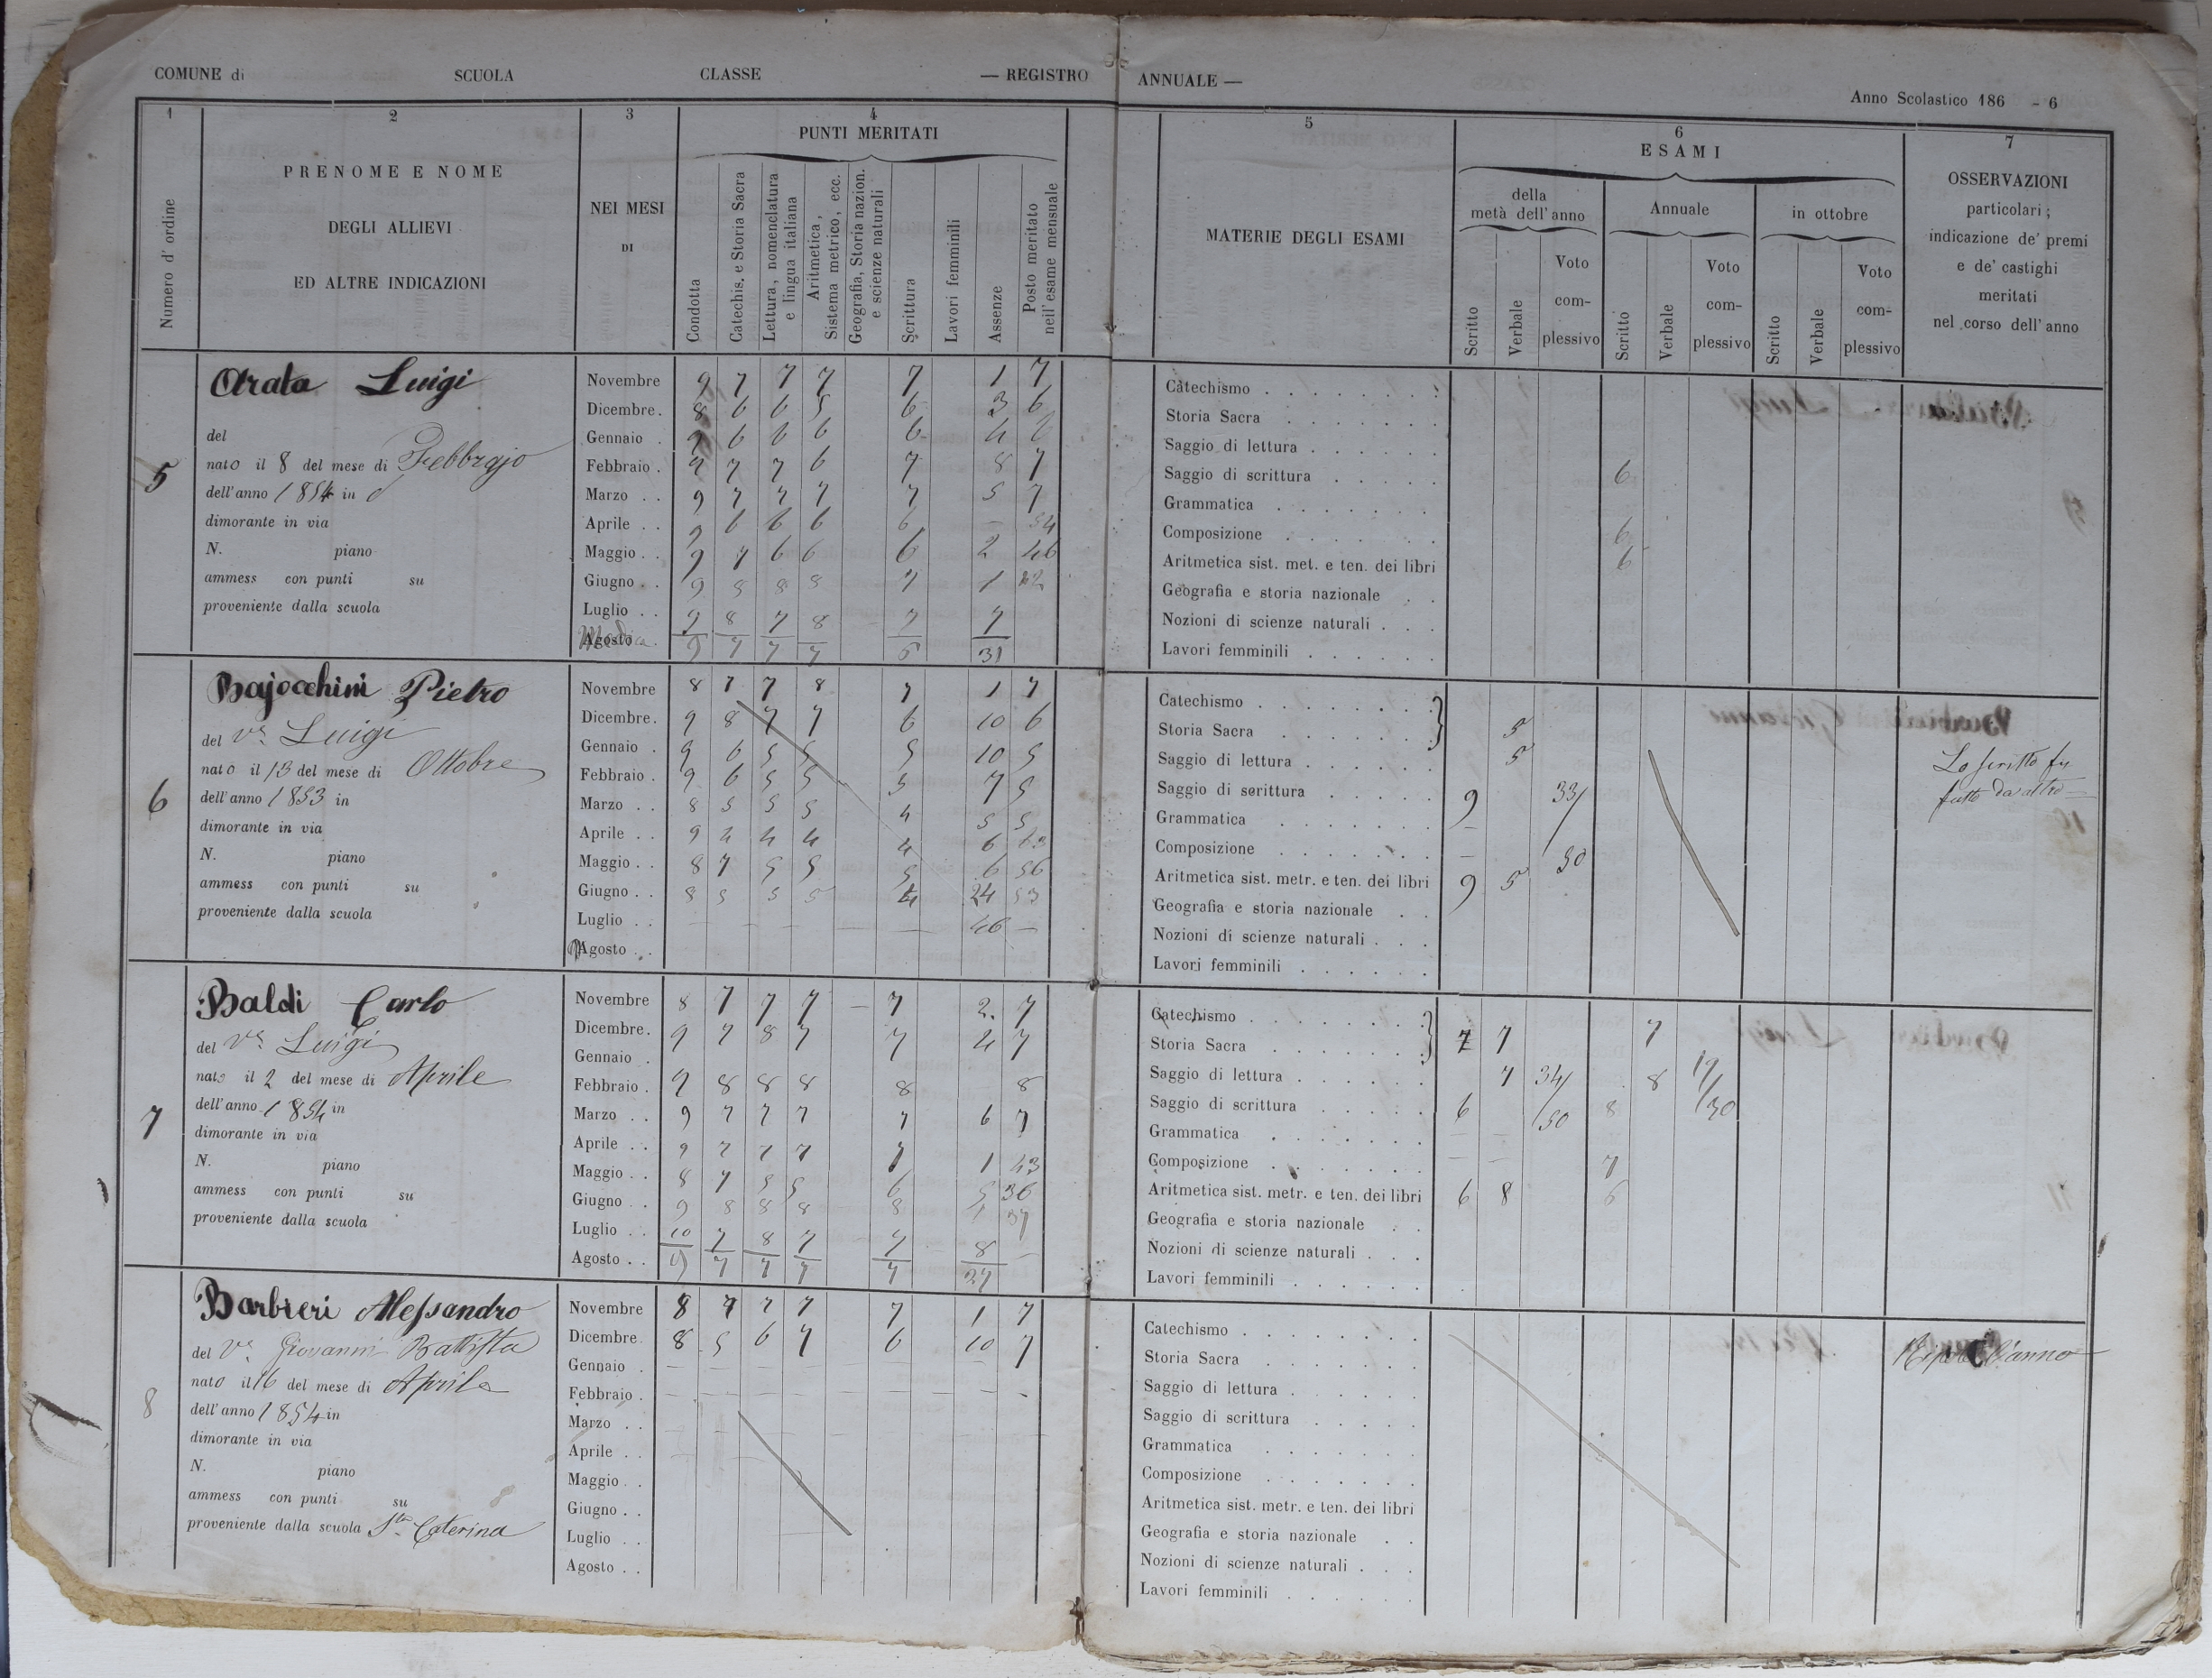 COMUNE di SCUOLA CLASSE — REGISTRO ANNUALE —
Anno Scolastico 186 - 6
1 2 3 4 5 6 7
Numero d'ordine
PRENOME E NOME
DEGLI ALLIEVI
ED ALTRE INDICAZIONI
NEI MESI
DI
PUNTI MERITATI
Condotta
Catechis. e Storia Sacra
Lettura, nomenclatura
e lingua italiana
Aritmetica,
Sistema metrico, ecc.
Geografia, Storia nazion.
e scienze naturali
Scrittura
Lavori femminili
Assenze
Posto meritato
nell'esame mensuale
MATERIE DEGLI ESAMI
ESAMI
della
metà dell'anno
Scritto
Verbale
Voto
com-
plessivo
Annuale
Scritto
Verbale
Voto
com-
plessivo
in ottobre
Scritto
Verbale
Voto
com-
plessivo
OSSERVAZIONI
particolari;
indicazione de' premi
e de' castighi
meritati
nel corso dell'anno
5
Arata Luigi
del
nato il 8 del mese di Febbrajo
dell'anno 1854 in
dimorante in via
N. piano
ammess con punti su
proveniente dalla scuola
Novembre 9 7 7 7 7 1 7
Dicembre. 8 6 6 5 6 3 6
Gennaio . 9 6 6 6 6 4 6
Febbraio . 9 7 7 6 7 8 7
Marzo . . 9 7 7 7 7 5 7
Aprile . . 9 6 6 6 6 — 54
Maggio . . 9 7 6 6 6 2 46
Giugno . . 9 8 8 8 7 1
Luglio . . 9 8 7 8 7 7
Agosto . 9 7 7 7 6 31
Catechismo
Storia Sacra
Saggio di lettura
Saggio di scrittura 6
Grammatica
Composizione 6
Aritmetica sist. met. e ten. dei libri 6
Geografia e storia nazionale
Nozioni di scienze naturali
Lavori femminili
6
Bajocchini Pietro
del Vo Luigi
nato il 13 del mese di Ottobre
dell'anno 1853 in
dimorante in via
N. piano
ammess con punti su
proveniente dalla scuola
Novembre 8 7 7 8 7 1 7
Dicembre. 9 8 7 7 6 10 6
Gennaio . 9 6 5 5 5 10 5
Febbraio . 9 6 5 5 5 7 5
Marzo . . 8 5 5 5 4 5 5
Aprile . . 9 4 4 4 4 6 63
Maggio . . 8 7 5 5 5 6 56
Giugno . . 8 5 5 5 4 24 53
Luglio . . — — — — — 46 —
Agosto . .
Catechismo
Storia Sacra 5
Saggio di lettura 5
Saggio di scrittura 9 33/
Grammatica —
Composizione — 50
Aritmetica sist. metr. e ten. dei libri 9 5
Geografia e storia nazionale
Nozioni di scienze naturali
Lavori femminili
Lo scritto fu
fatto da altro —
7
Baldi Carlo
del Vo Luigi
nato il 2 del mese di Aprile
dell'anno 1854 in
dimorante in via
N. piano
ammess con punti su
proveniente dalla scuola
Novembre 8 7 7 7 — 7 2 7
Dicembre. 9 7 8 7 7 4 7
Gennaio .
Febbraio . 9 8 8 8 8 8
Marzo . . 9 7 7 7 7 6 7
Aprile . . 9 7 7 7 7 1 43
Maggio . . 8 7 5 5 6 5 36
Giugno . . 9 8 8 8 8 1 37
Luglio . . 10 7 8 7 7 8 —
Agosto . . 9 7 7 7 7 27
Catechismo
Storia Sacra 7 7 7
Saggio di lettura 7 34/ 8 19/
Saggio di scrittura 6 /50 8 /30
Grammatica — —
Composizione — — 7
Aritmetica sist. metr. e ten. dei libri 6 8 6
Geografia e storia nazionale
Nozioni di scienze naturali
Lavori femminili
8
Barbieri Alessandro
del Vo Giovanni Battista
nato il 16 del mese di Aprile
dell'anno 1854 in
dimorante in via
N. piano
ammess con punti su
proveniente dalla scuola Sta Caterina
Novembre 8 7 7 7 7 1 7
Dicembre. 8 5 6 7 6 10 7
Gennaio . — — — — — — —
Febbraio . — — — — — — -
Marzo . .
Aprile . .
Maggio . .
Giugno . .
Luglio . .
Agosto . .
Catechismo
Storia Sacra
Saggio di lettura
Saggio di scrittura
Grammatica
Composizione
Aritmetica sist. metr. e ten. dei libri
Geografia e storia nazionale
Nozioni di scienze naturali
Lavori femminili
l'anno